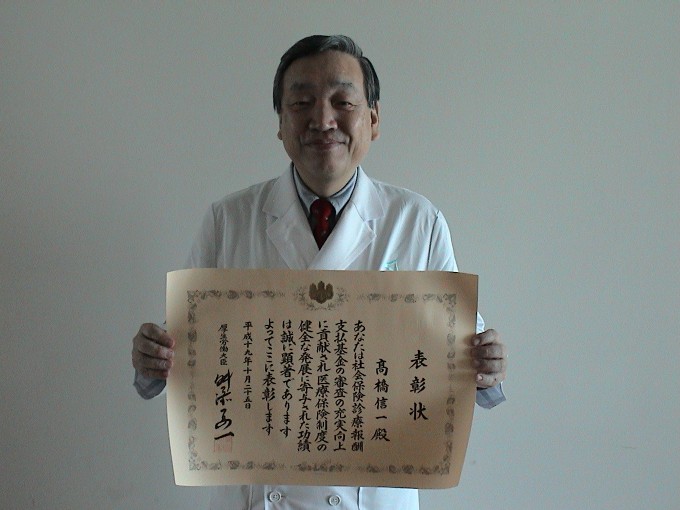 表彰状
高橋信一殿
あなたは社会保険診療報酬
支払基金の審査の充実向上
に貢献され医療保険制度の
健全な発展に寄与された功績
は誠に顕著であります
よってここに表彰します
平成十九年十月二十五日
厚生労働大臣